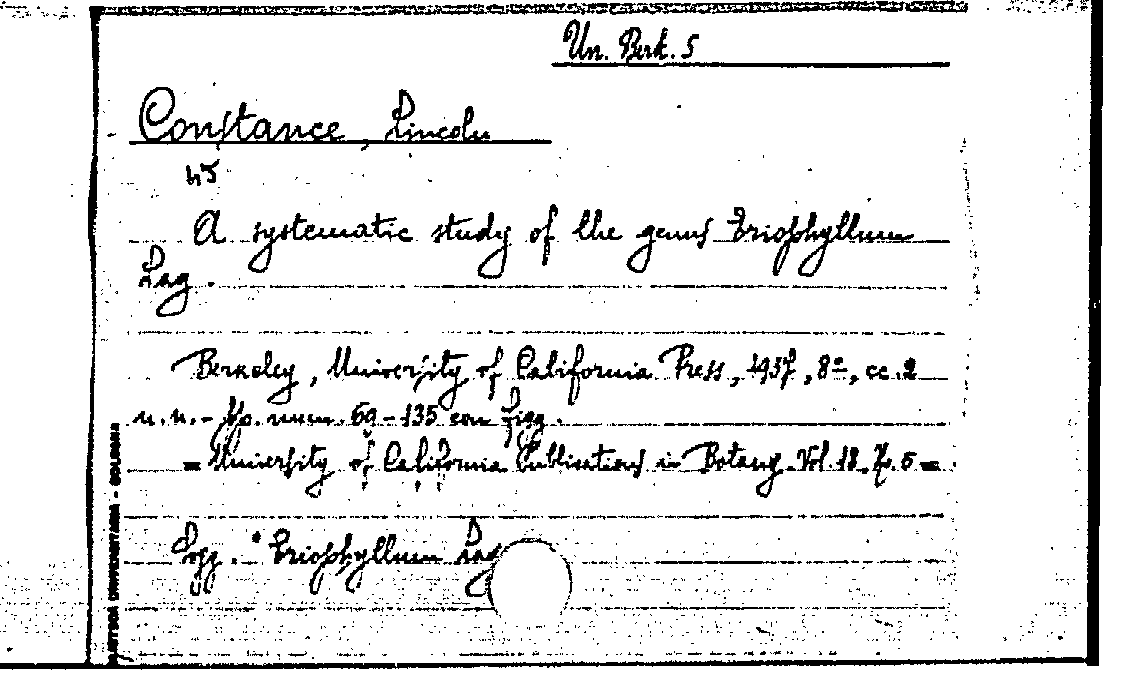 Un. Berk. 5
Constance, Lincoln
45
A systematic study of the genus Eriophyllum
Lag.
Berkeley, University of California Press, 1937, 8°, cc. 2
n. n. - pp. num. 69-135 con figg.
= University of California Publications in Botany. Vol. 18, N. 5 =
Sogg. Eriophyllum Lag
UNIVERSITARIA - BOLOGNA